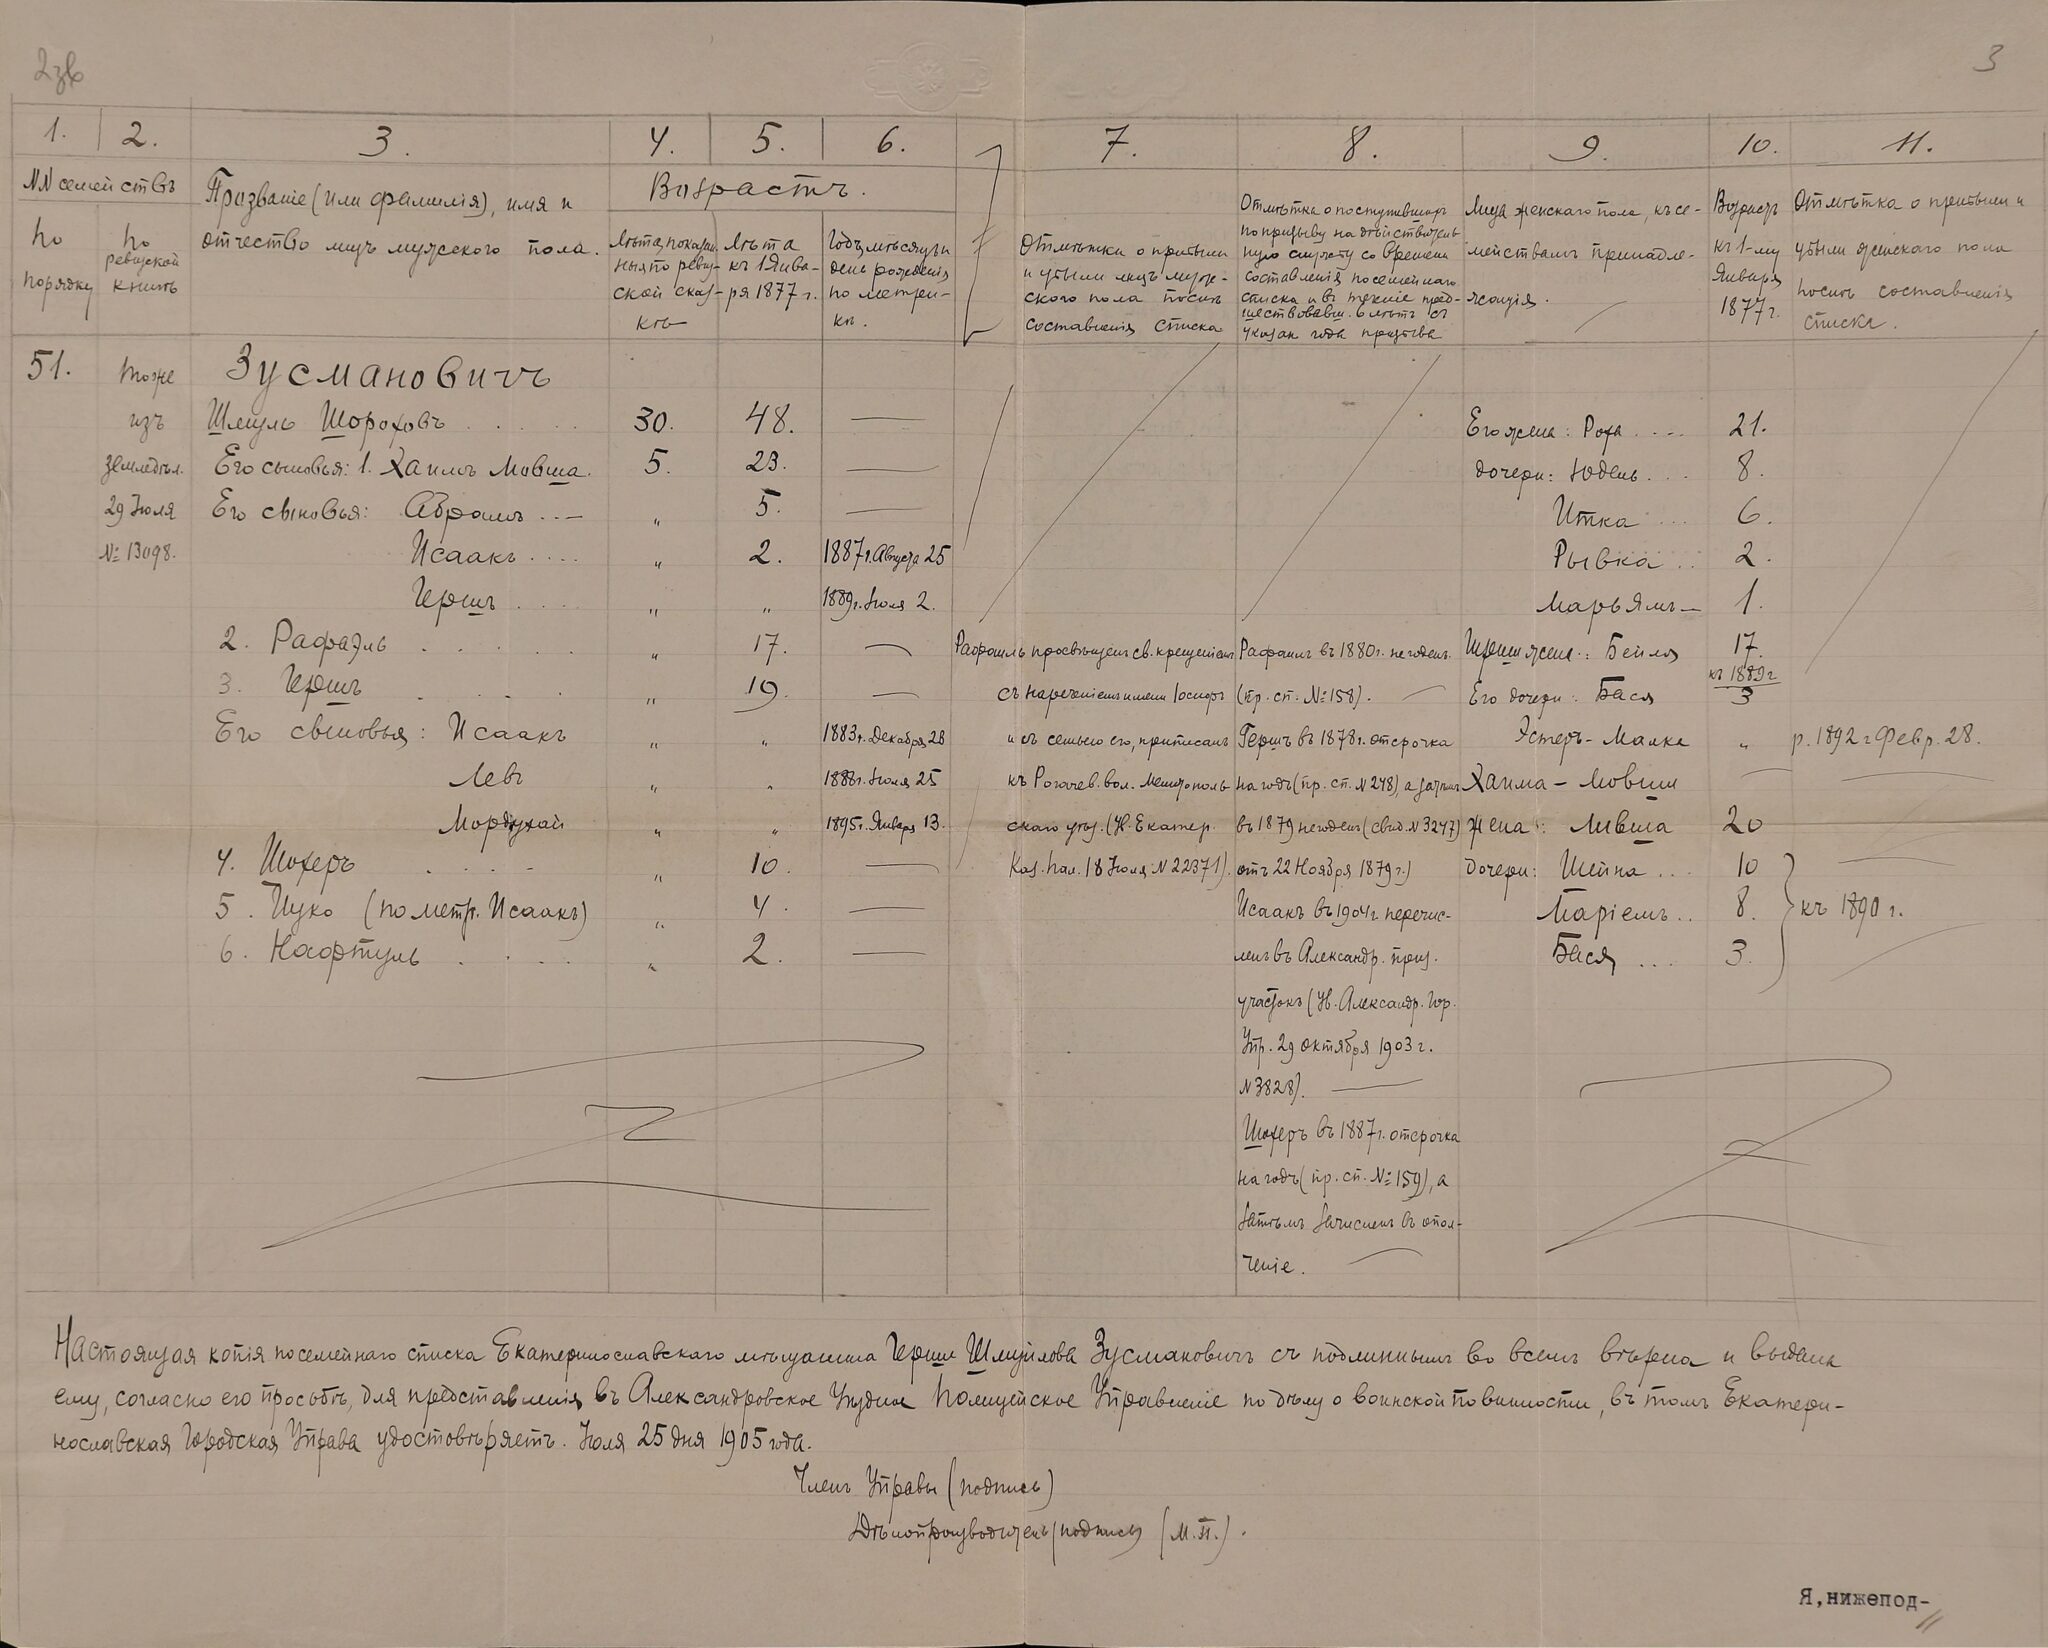 3
1. 2. 3. 4. 5. 6. 7. 8. 9. 10. 11.
NN семействъ
по порядку
по ревизской книгѣ
Прозваніе (или фамилія), имя и
отчество лицъ мужского пола.
Возрастъ.
Лѣта, показан-
ныя по реви-
ской сказ-
кѣ
Лѣта
къ 1 Янва-
ря 1877 г.
Годъ, мѣсяцъ и
день рожденія
по метри-
кѣ.
Отмѣтки о прибыли
и убыли лицъ муж-
ского пола послѣ
составленія списка
Отмѣтка о поступившихъ
по призыву на дѣйствитель
ную службу со времени
составленія посемейнаго
списка и въ теченіе пред-
шествовавш. 6 лѣтъ съ
указан. года призыва
Лица женскаго пола, къ се-
мействамъ принадле-
жащія.
Возрастъ
къ 1-му
Января
1877 г.
Отмѣтка о прибыли и
убыли женскаго пола
послѣ составленія
списка.
51. тоже Зусмановичъ
изъ Шмуль Шороховъ 30. 48. Его жена: Роха 21.
земледѣл. Его сыновья: 1. Хаимъ Мовша. 5. 23. дочери: Юдесь 8.
29 Іюля Его сыновья: Абрамъ „ 5. Итка 6.
№ 13098. Исаакъ „ 2. 1887 г. Августа 25 Рывка 2.
Гершъ „ „ 1889 г. Іюля 2. Марьямъ 1.
2. Рафаэль „ 17. Рафаилъ просвѣщенъ св. крещеніемъ Рафаилъ въ 1880 г. негоденъ. Герши жена: Бейля 17.
къ 1889 г
3. Гершъ „ 19. съ нареченіемъ имени Іосифъ (пр. сп. № 158). Его дочери: Бася 3
Его сыновья: Исаакъ „ „ 1883 г. Декабря 28 и съ семьею его, приписанъ Гершъ въ 1878 г. отсрочка Эстеръ-Малка „ р. 1892 г Февр. 28.
Левъ „ „ 1888 г. Іюля 25 къ Рогачев. вол. Мелитополь на годъ (пр. сп. N 248), а затѣмъ Хаима-Мовши
Мордухай „ „ 1895 г. Января 13. скаго уѣз. (Ув. Екатер. въ 1879 негоденъ (свид. N 3247) жена: Ливша 20
4. Шохеръ „ 10. Каз. Пал. 18 Іюля N 22371). отъ 22 Ноября 1879 г.) дочери: Шейна 10
5. Ицко (по метр. Исаакъ) „ 4. Исаакъ въ 1904 г. перечис- Маріемъ 8. къ 1890 г.
6. Нафтуль „ 2. ленъ въ Александр. приз. Бася 3.
участокъ (Ув. Александр. Гор.
Упр. 29 октября 1903 г.
N 3828).
Шохеръ въ 1887 г. отсрочка
на годъ (пр. сп. № 159), а
затѣмъ зачисленъ въ опол-
ченіе.
Настоящая копія посемейнаго списка Екатеринославскаго мѣщанина Герши Шмуйлова Зусмановичъ съ подлиннымъ во всемъ вѣрна и выдана
ему, согласно его просьбѣ, для представленія въ Александровское Уѣздное Полицейское Управленіе по дѣлу о воинской повинности, въ томъ Екатери-
нославская Городская Управа удостовѣряетъ. Іюля 25 дня 1905 года.
Членъ Управы (подпись)
Дѣлопроизводитель (подпись) (М.П.).
Я,нижепод-